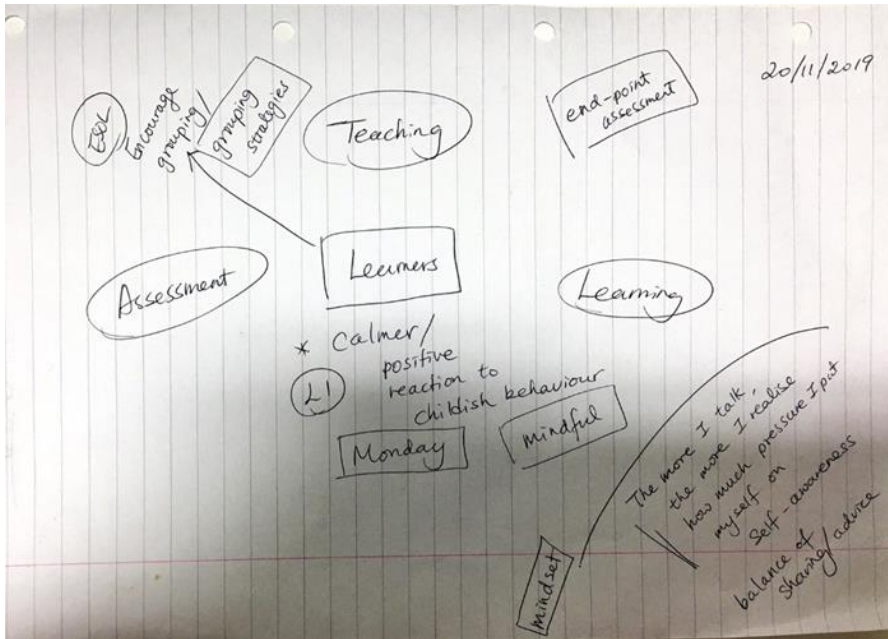 20/11/2019
ESOL
Encourage
grouping/
grouping
strategies
Teaching
end-point
assessment
Assessment
Learners
Learning
* Calmer/
positive
reaction to
childish behaviour
L1
Monday
mindful
mindset
The more I talk,
the more I realise
how much pressure I put
myself on
Self-awareness
balance of
sharing/advice